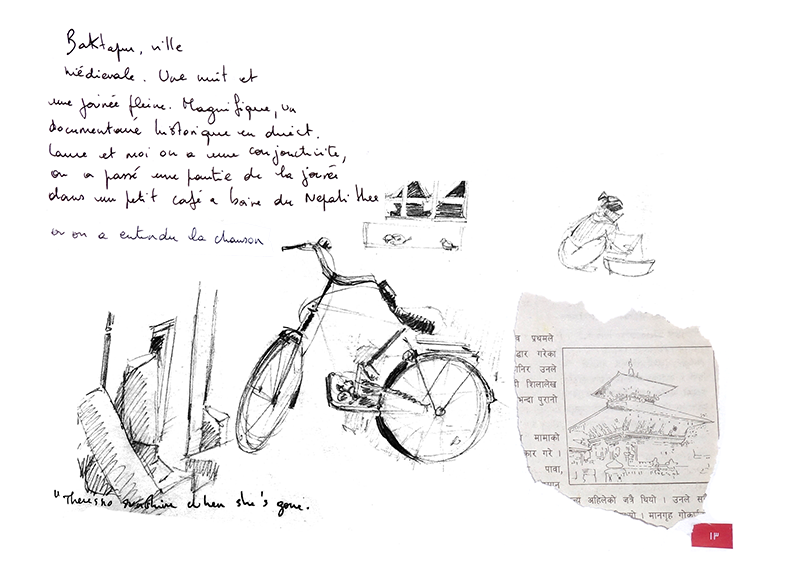 Baktapur, ville
médievale. Une nuit et
une journée pleine. Magnifique, un
documentaire historique en direct.
Laure et moi on a une conjonctivite,
on a passé une partie de la journée
dans un petit café a boire du Nepali thee
ou on a entendu la chanson
प्रथमले
गरेका
उनले
शिलालेख
भन्दा पुरानो
मामाको
गरे ।
पावा,
अहिलेको जत्रै थियो । उनले
यो । मानगृह
"There's no sunshine when she's gone.
१३